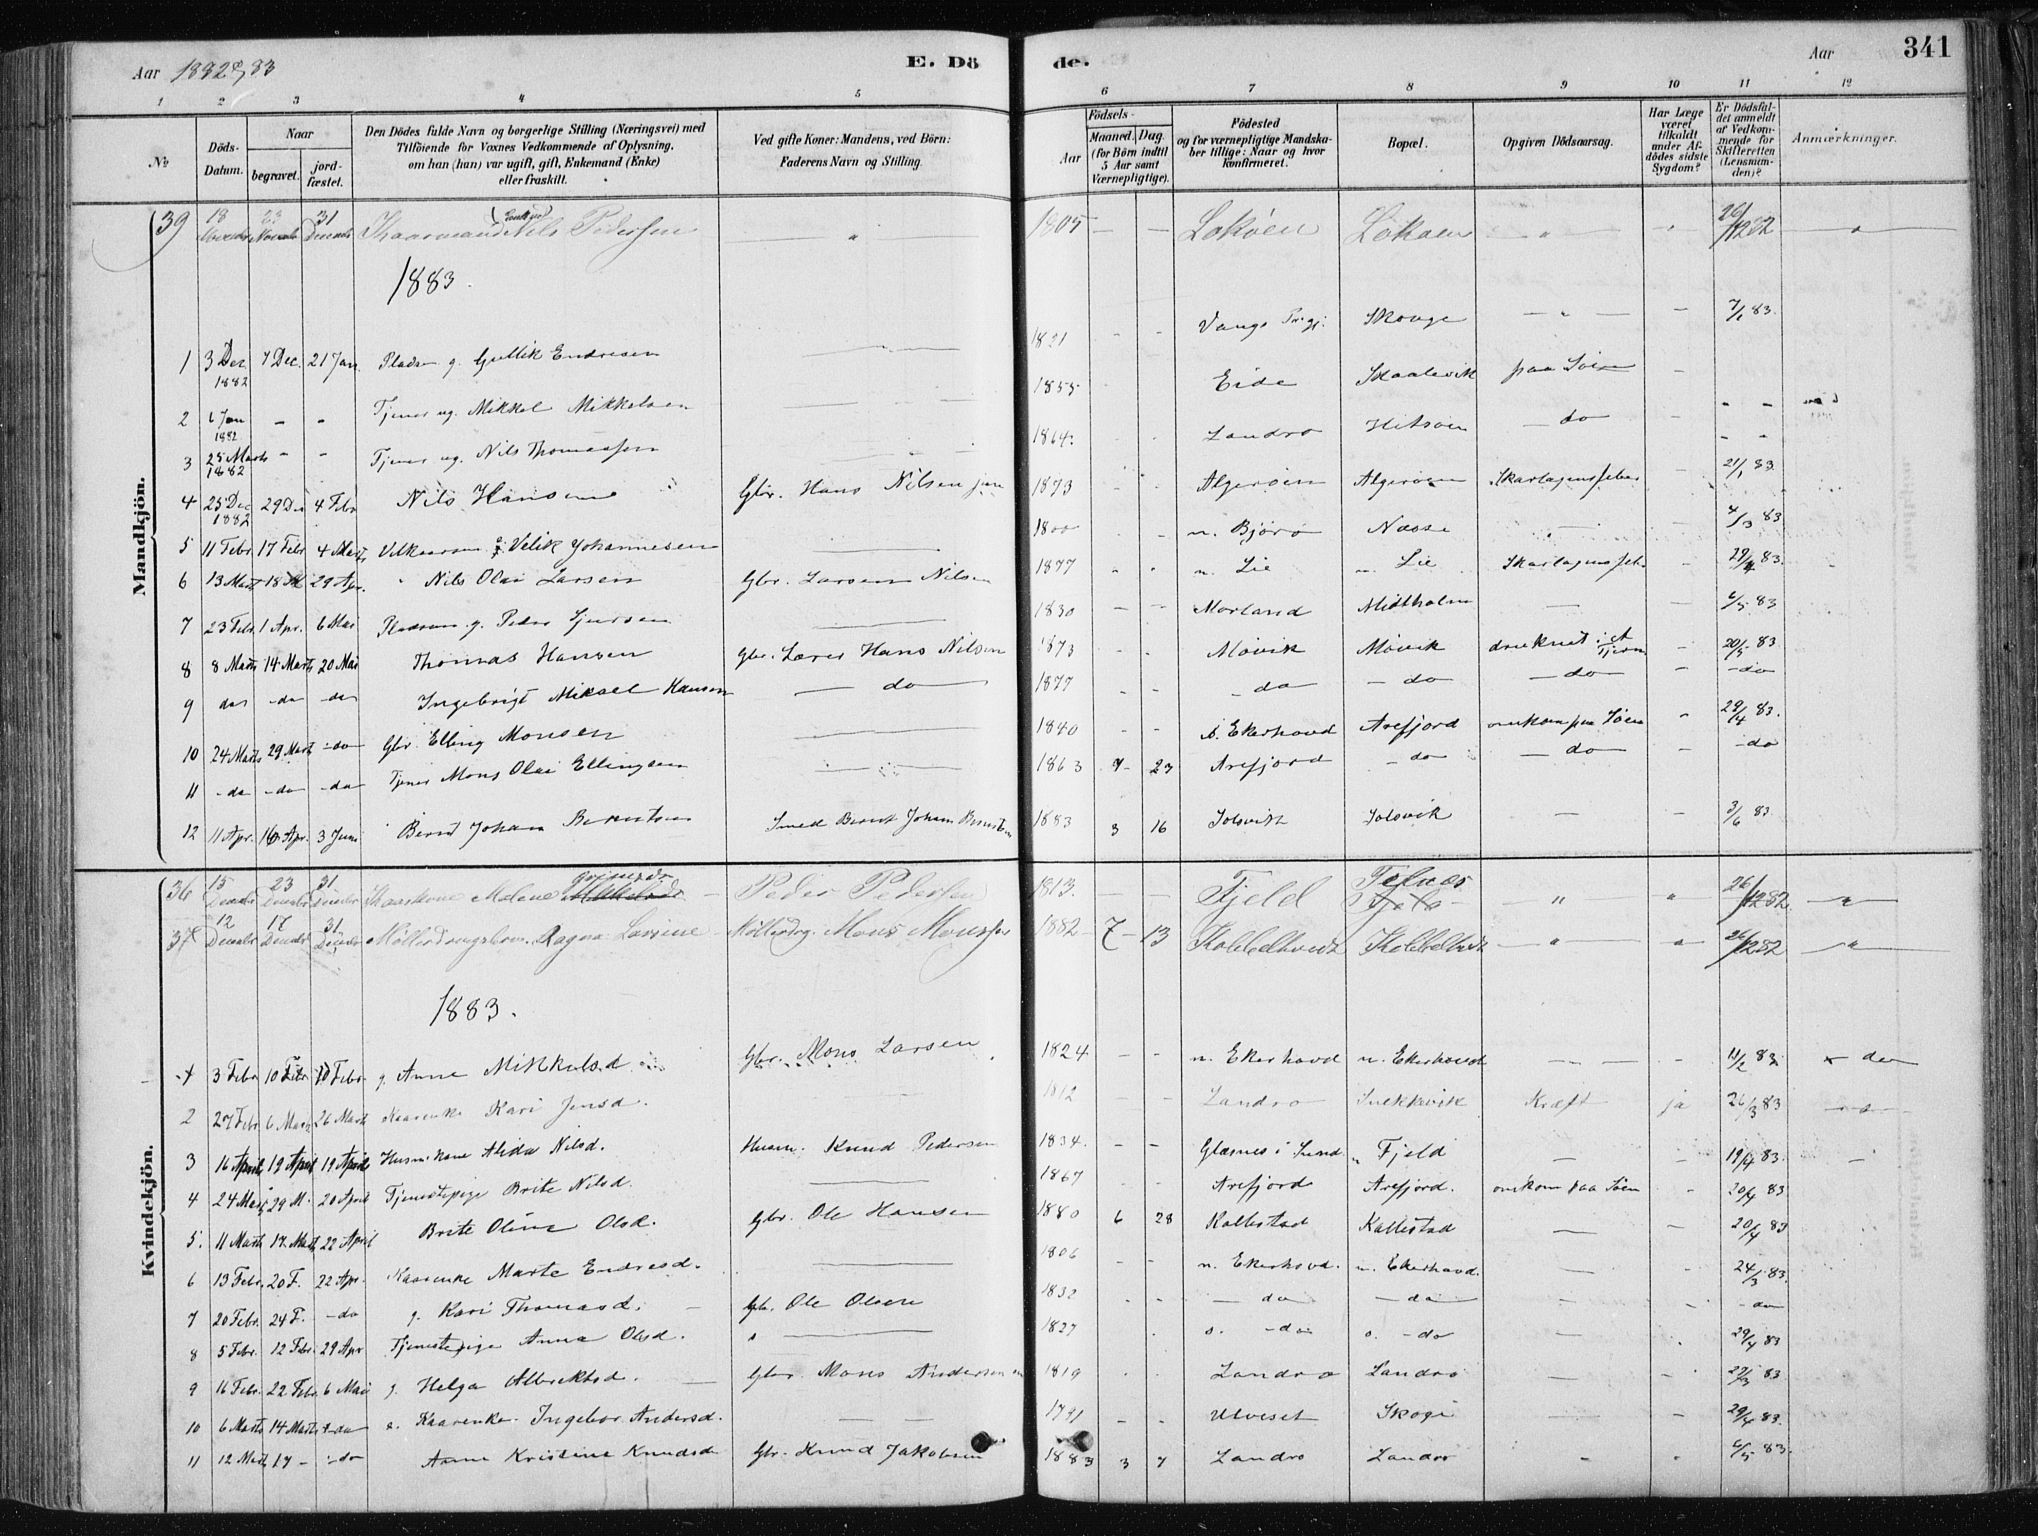 Aar 1882 & 83 E. Dö de. Aar 341
1 2 3 4 5 6 7 8 9 10 11 12
No Döds-Datum. Naar begravet. jord-fæstet. Den Dödes fulde Navn og borgerlige Stilling (Næringsvei) med Tilföiende for Voxnes Vedkommende af Oplysning, om han (hun) var ugift, gift, Enkemand (Enke) eller fraskilt. Ved gifte Koner: Mandens, ved Börn: Faderens Navn og Stilling. Födsels- Aar Maaned. Dag. (for Börn indtil 5 Aar samt Værnepligtige). Födested og for værnepligtige Mandskaber tillige: Naar og hvor konfirmeret. Bopæl. Opgiven Dödsaarsag. Har Læge været tilkaldt under Afdödes sidste Sygdom? Er Dödsfaldet anmeldt af Vedkommende for Skifteretten (Lensmanden)? Anmærkninger.
Mandkjön.
39 18 23 31 Kaarmand Nils Pedersen " 1805 — — Lokøen Løkøen " 26/12 82 "
1883.
1 3 Dec 1882 7 Dec. 21 Jan. Pladsm g. Gullik Endresen — 1821 - - Vangs Prgj. Skouge — " — - 7/1 83.
2 6 Jan 1882 - - Tjener ug. Mikkel Mikkelsen — 1855 Eide Skaalevik paa Søen -
3 25 Marts 1882 - - Tjener ug. Nils Thomassen — 1864 Landro Hitsøen — do - -
4 25 Dec 1882 29 De 4 Febr Nils Hansen Gbr. Hans Nilsen jun 1873 Algerøen Algerøen Skarlagensfeber - 21/1 83.
5 11 Febr 17 Febr 4 Marts Vilkaarsm Velik Johannesen — 1800 n. Bjorø Næsse — 4/3 83
6 13 Marts 18 M 29 Apr. Nils Olai Larsen Gbr. Larsen Nilsen 1877 - - n. Lie n. Lie Skarlagensfeb - 29/4 83.
7 23 Febr 1 Apr. 6 Mai Pladsm. g. Peder Sjursen — 1830 - - Morland Midtholm — - 6/5 83
8 8 Marts 14 Marts 20 Mai Thomas Hansen Gbr. Lærer Hans Nilsen 1873 Møvik Møvik druknet i et Tjern - 20/5 83
9 do - do - do Ingebrigt Mikael Hansen — do 1877 - - - do — do — do - - do
10 24 Marts 29 Marts - do Gbr. Elling Monsen — 1840 - - Ekerhovd Arefjord omkom paa Søen - 29/4 83.
11 - do - do - do Tjener Mons Olai Ellingsen — 1863 9 - 23 Arefjord - do — do - - do
12 11 Apr. 16 Apr. 3 Juni Bernt Johan Berntsen Smed Bernt Johan Berntsen 1883 3 16 Solsvik Solsvik — - 3/6 83
Kvindekjön.
36 15 23 31 Kaarkone Malene Peder Pedersen 1813. — Fjeld " " 26/12 82. "
37 12 17 31 Ragna Larsine Mons Monssen 1882 - 7 - 13 Kobbeltvedt Kobbeltvedt " " 26/12 82 "
1883.
1 3 Febr 10 Febr 18 Febr g. Anne Mikkelsd Gbr. Mons Larsen 1824 - - n. Ekerhovd n. Ekerhovd — - 11/2 83
2 27 Febr. 6 Marts 26 Marts Kaarenke Kari Jensd. 1812 Landro Snekkevik Kræft ja 26/3 83
3 16 April 19 April 19 April Husm. kone Alida Nilsd. Husm. Knud Pedersen 1834. - - Glæsnes i Sund Fjeld — - 19/4 83.
4 24 Marts 29 M. 20 April Tjenestepige Brite Nilsd. 1867 Arefjord Arefjord. omkom paa Søen - 20/4 83
5. 11 Marts 17 Marts 22 April Brite Oline Olsd. Gbr. Ole Hansen 1880 6 28 Kallestad Kallestad — - 20/4 83
6 13 Febr. 20 F. 22 Apr. Kaarenke Marte Endresd. — 1806 n. Ekerhovd. n. Ekerhovd. — 24/3 83.
7 20 Febr. 24 F. - do g. Kari Thomasd. Gbr. Ole Olsen 1832 - - — do — do — - - do
8 5 Febr. 12 Febr 29 Apr Tjenestepige Anna Olsd. — 1827 o. - do o. - do — 29/4 83
9 16 Febr. 22 Febr. 6 Mai g. Helga Albrektsd. Gbr. Mons Andersen 1819 Landro Landro — - 27/3 83
10 6 Marts 14 Marts - do e. Kaarenke. Ingebor Andersd. — 1791 - - Ulveset Skoge — 29/4 83.
11 12 Marts 17 - - do Anne Kristine Knudsd Gbr. Knud Jakobsen 1883 3 7 Landro Landro - - 6/5 83.